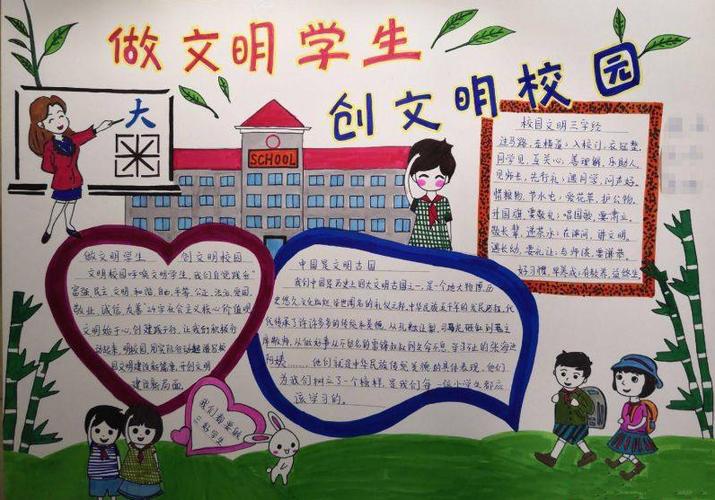 做文明学生
创文明校园
大
SCHOOL
校园文明三字经
过马路,左右看;入校门,衣冠整,
同学见,互关心,善理解,乐助人,
见师长,先行礼;遇同学,问声好.
惜粮物,节水电;爱花草,护公物.
升国旗,要敬礼;唱国歌,要肃立.
敬长辈,
遇长幼,要礼让;与师谈,要谦恭.
好习惯,早养成;有教养,益终生
做文明学生 创文明校园
文明校园呼唤文明学生,我们自觉践行"
富强、民主、文明、和谐、自由、平等、公正、法治、爱国、
敬业、诚信、友善"24字社会主义核心价值观
文明始于心,创建践于行,让我们积极行
动起来,
园文明建设的篇章,开创文明
建设新局面。
中国是文明古国
我们中国是历史上四大文明古国之一,是个地大物博,历
史悠久,文化灿烂,举世闻名的礼仪之邦,中华民族五千年的发展历程,代
代传承了许许多多的传统和美德,从孔融让梨,司马光砸缸到岳主
席敬师,从做好事从不留名的雷锋叔叔到舍命不忘,学习不止的张海迪
阿姨……他们就是中华民族传统美德的具体表现,他们
为我们树立了一个榜样,是我们每一位小学生都应
该学习的。
我们都要做
三好学生